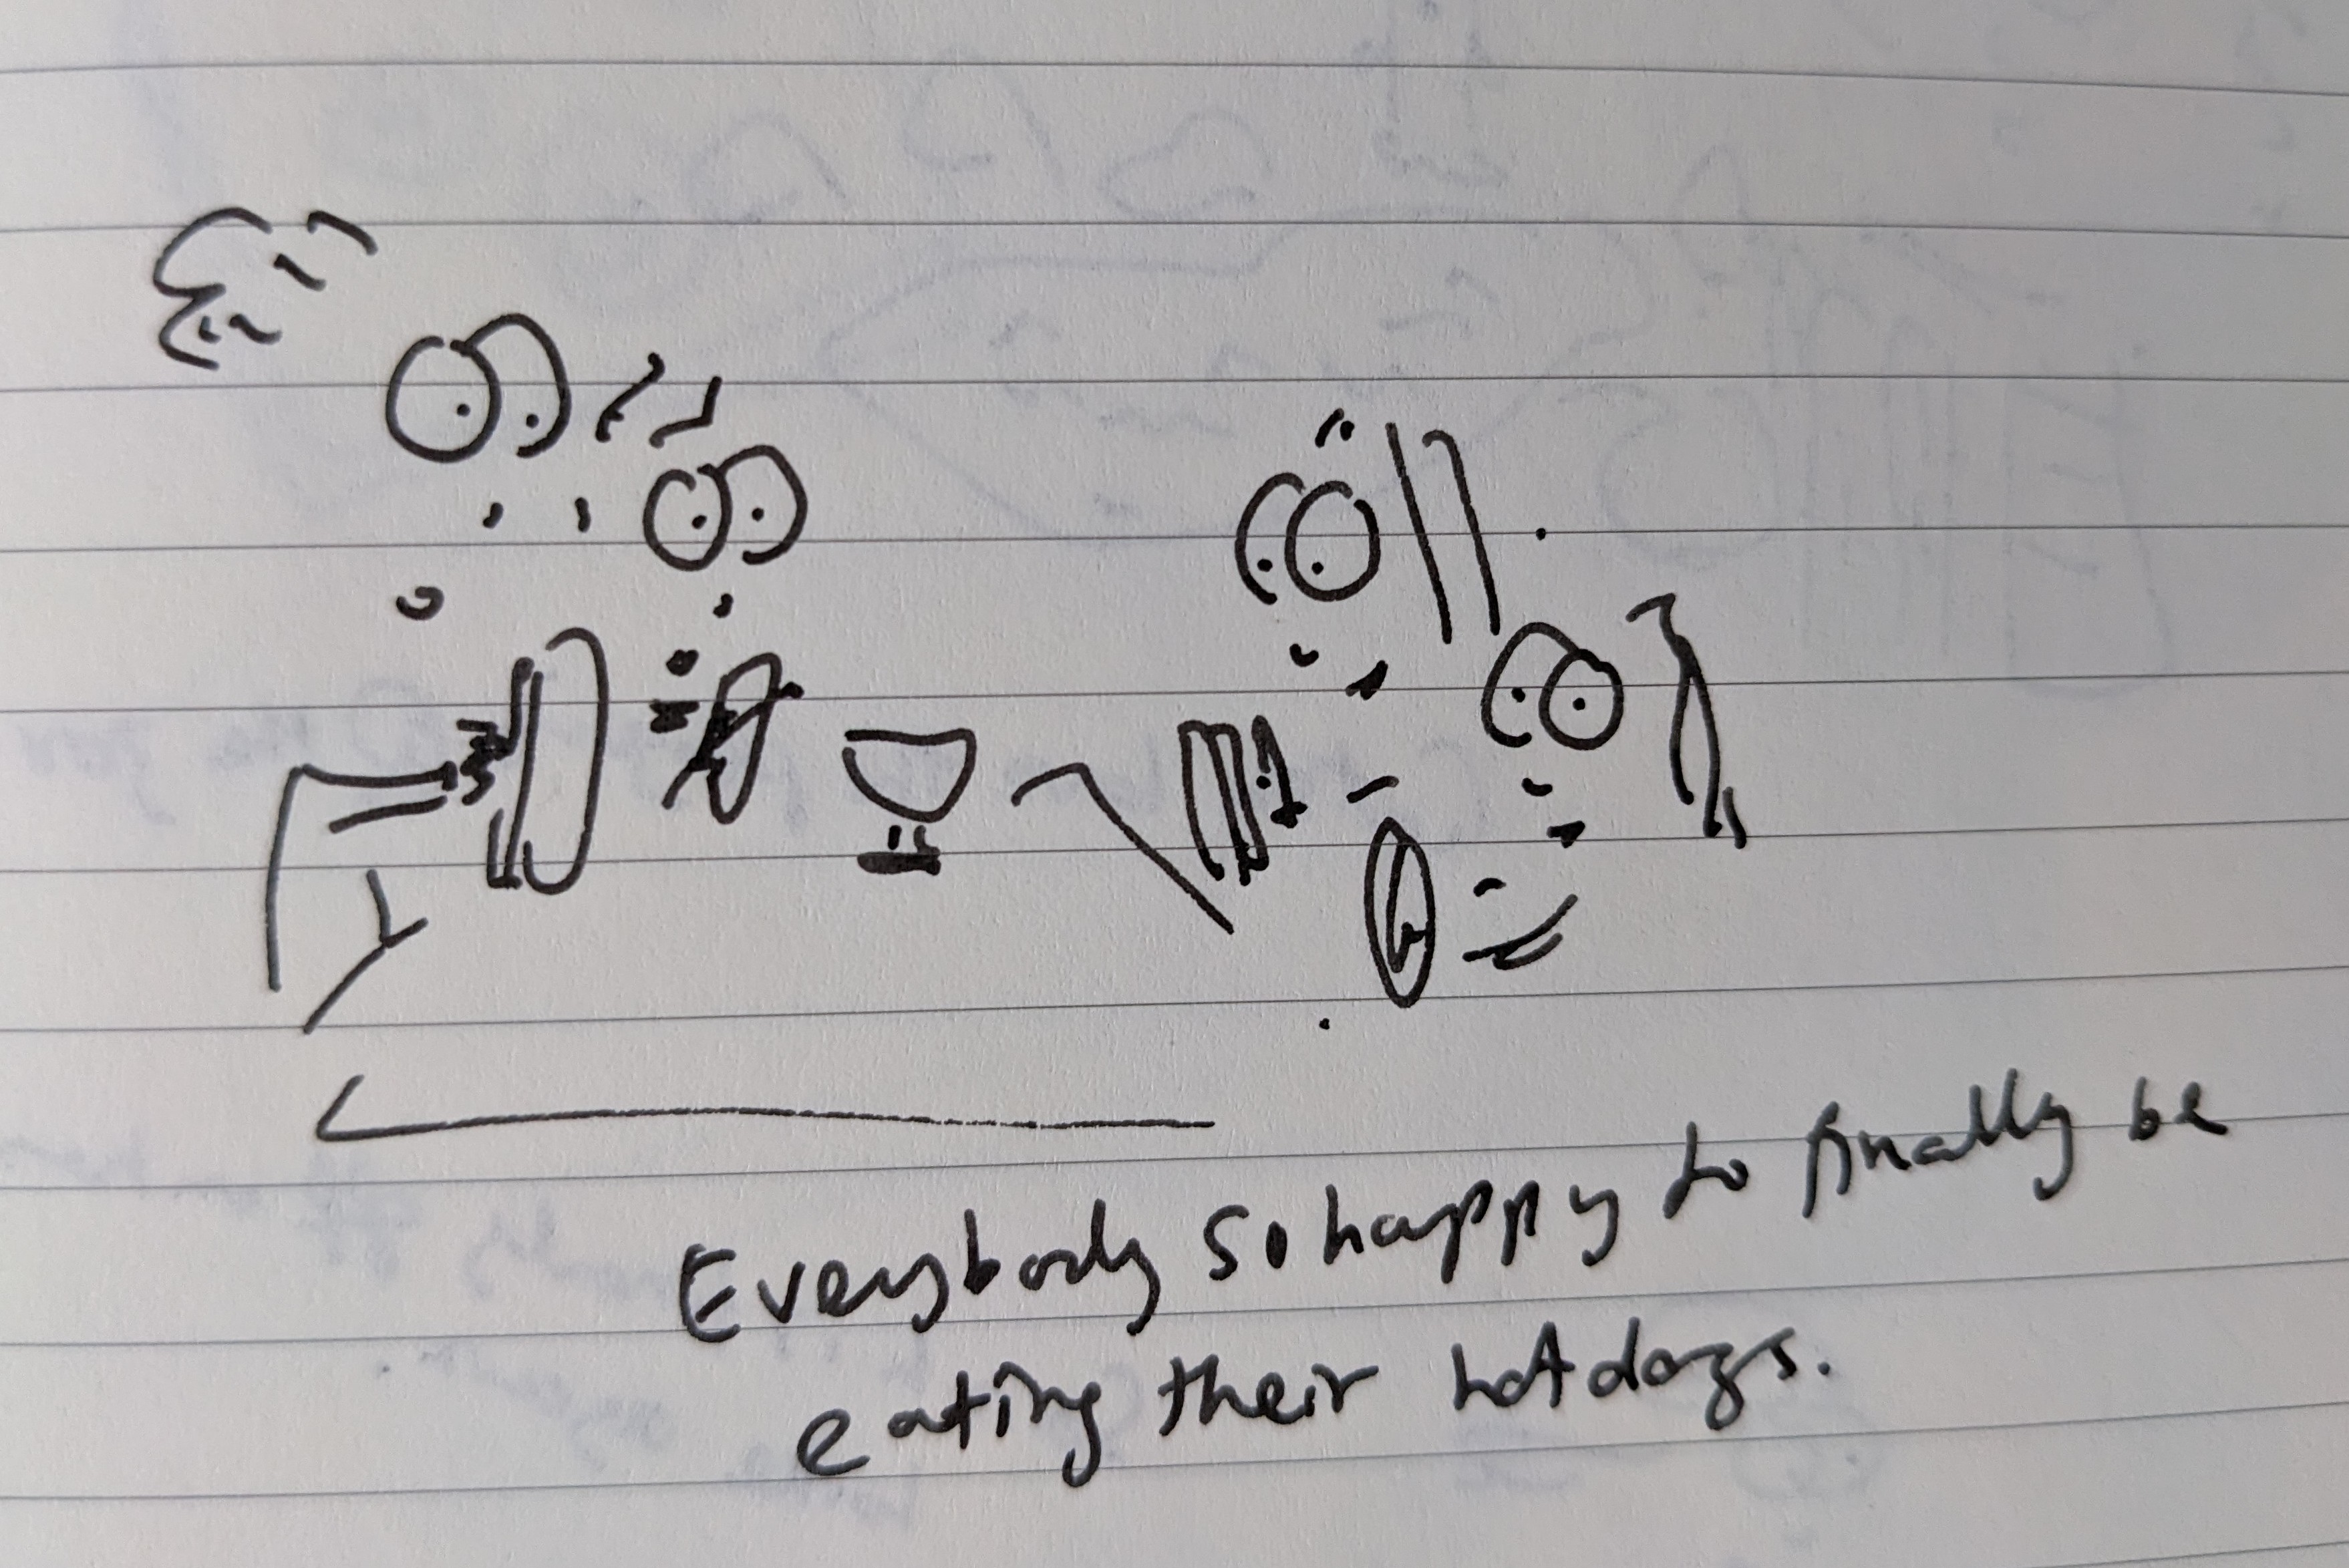 Everybody so happy to finally be
eating their hotdogs.